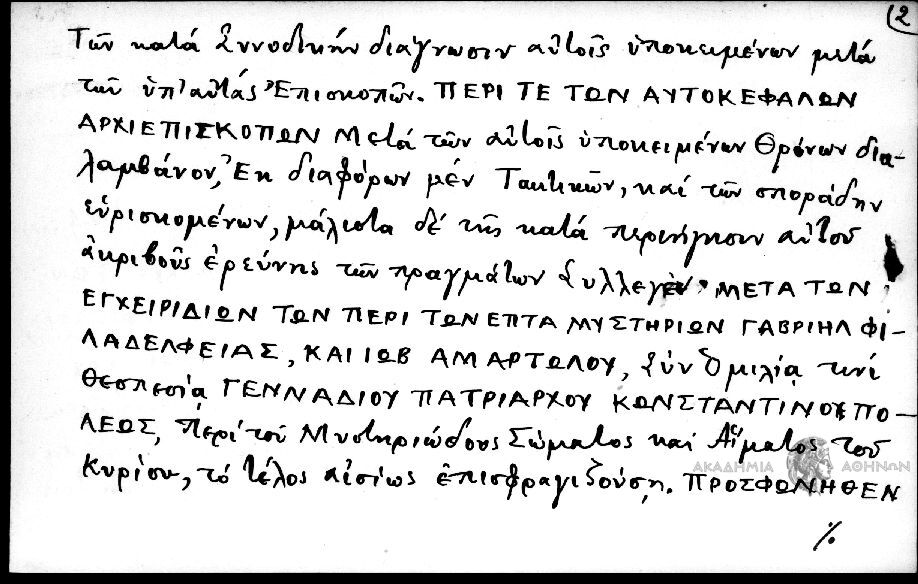 (2
Τῶν κατά Συνοδικήν διάγνωσιν αὐτοῖς ὑποκειμένων μετά
τῶν ὑπ' αὐτάς Ἐπισκοπῶν. ΠΕΡΙ ΤΕ ΤΩΝ ΑΥΤΟΚΕΦΑΛΩΝ
ΑΡΧΙΕΠΙΣΚΟΠΩΝ Μετά τῶν αὐτοῖς ὑποκειμένων Θρόνων δια-
λαμβάνον, Ἐκ διαφόρων μέν Τακτικῶν, καί τῶν σποράδην
εὑρισκομένων, μάλιστα δέ τῆς κατά περιήγησιν αὐτοῦ
ἀκριβοῦς ἐρεύνης τῶν πραγμάτων Συλλεγέν· ΜΕΤΑ ΤΩΝ
ΕΓΧΕΙΡΙΔΙΩΝ ΤΩΝ ΠΕΡΙ ΤΩΝ ΕΠΤΑ ΜΥΣΤΗΡΙΩΝ ΓΑΒΡΙΗΛ ΦΙ-
ΛΑΔΕΛΦΕΙΑΣ, ΚΑΙ ΙΩΒ ΑΜΑΡΤΩΛΟΥ, Σύν Ὁμιλίᾳ τινί
θεσπεσίᾳ ΓΕΝΝΑΔΙΟΥ ΠΑΤΡΙΑΡΧΟΥ ΚΩΝΣΤΑΝΤΙΝΟΥΠΟ-
ΛΕΩΣ, Περί τοῦ Μυστηριώδους Σώματος καί Αἵματος τοῦ
Κυρίου, τό τέλος αἰσίως ἐπισφραγιζούσῃ. ΠΡΟΣΦΩΝΗΘΕΝ
ΑΚΑΔΗΜΙΑ ΑΘΗΝΩΝ
./.